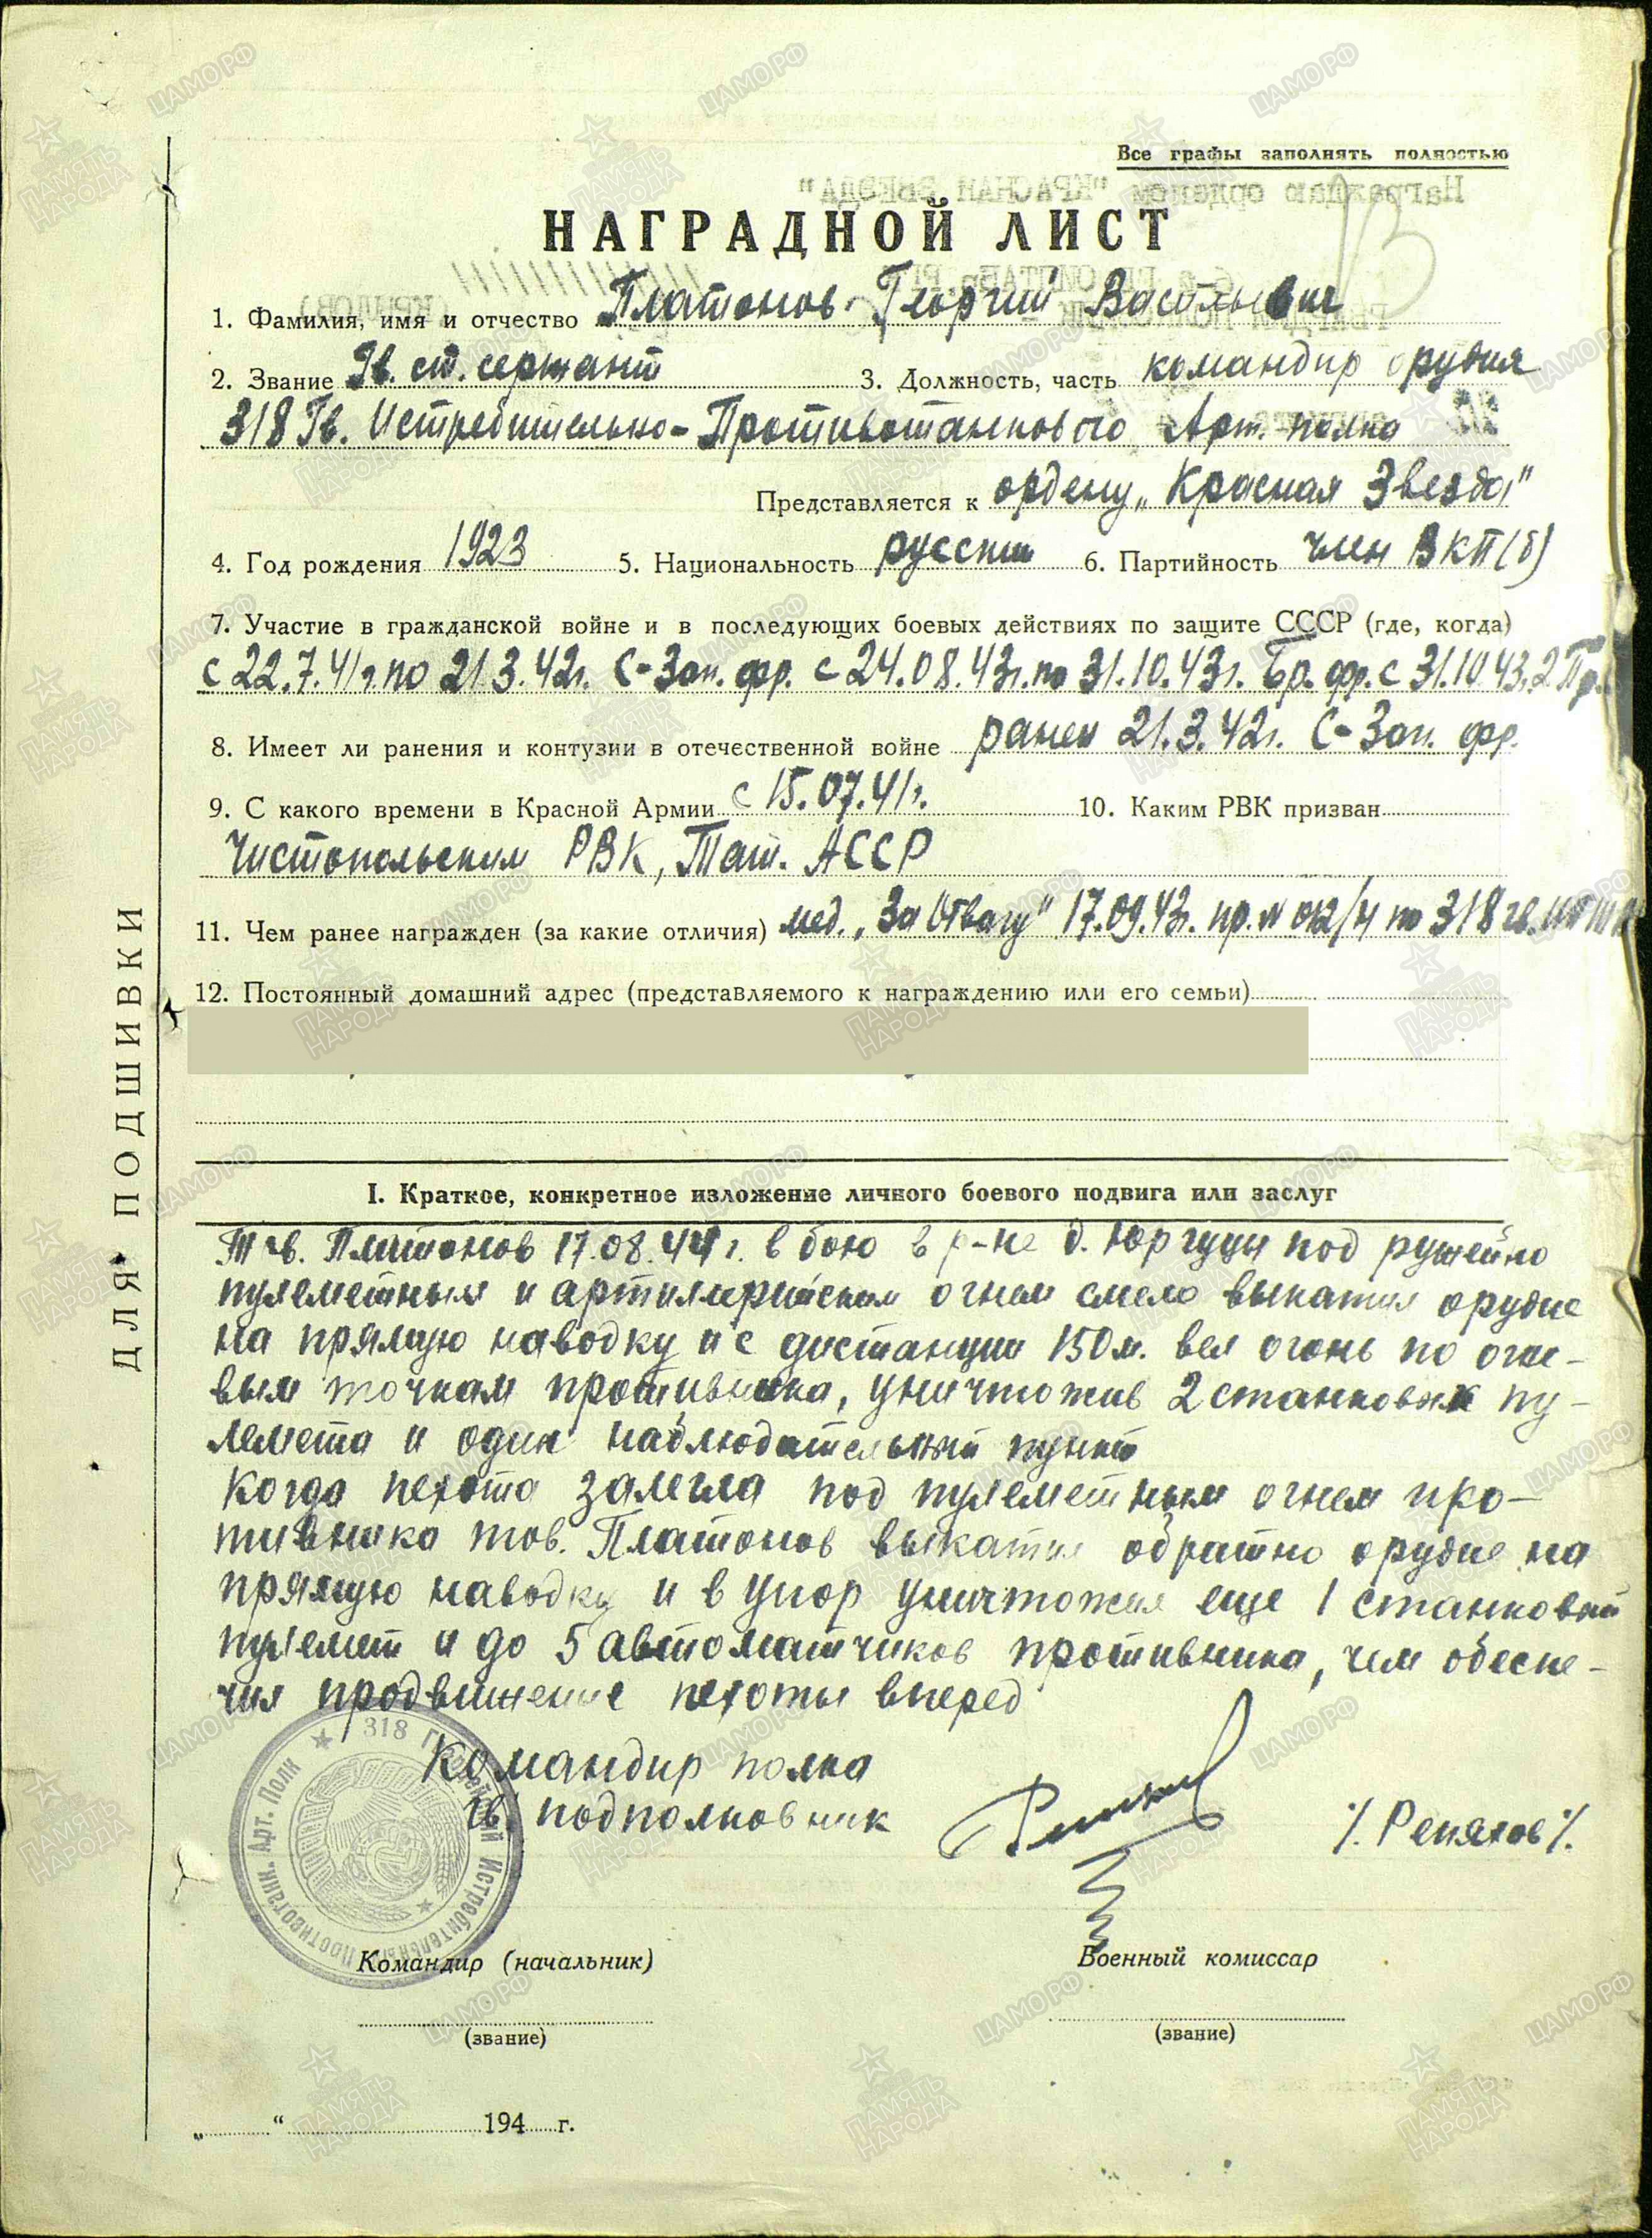 Все графы заполнять полностью
НАГРАДНОЙ ЛИСТ
1. Фамилия, имя и отчество Платонов Георгий Васильевич
2. Звание Гв. ст. сержант 3. Должность, часть командир орудия
318 Гв. Истребительно-Противотанкового Арт. полка
Представляется к ордену „Красная Звезда"
4. Год рождения 1923 5. Национальность русский 6. Партийность член ВКП(б)
7. Участие в гражданской войне и в последующих боевых действиях по защите СССР (где, когда)
с 22.7.41г. по 21.3.42г. С-Зап. фр. с 24.08.43г. по 31.10.43г. Бр. фр. с 31.10.43г. 2 Пр.
8. Имеет ли ранения и контузии в отечественной войне ранен 21.3.42г. С-Зап. фр.
9. С какого времени в Красной Армии с 15.07.41г. 10. Каким РВК призван
Чистопольским РВК, Тат. АССР
11. Чем ранее награжден (за какие отличия) мед. „За Отвагу" 17.09.43г. пр. № 012/н по 318 гв. ИПТАП
12. Постоянный домашний адрес (представляемого к награждению или его семьи)
ДЛЯ ПОДШИВКИ
I. Краткое, конкретное изложение личного боевого подвига или заслуг
Тов. Платонов 17.08.44г. в бою в р-не д. Юргуци под ружейно
пулеметным и артиллерийским огнем смело выкатил орудие
на прямую наводку и с дистанции 150 м. вел огонь по огне-
вым точкам противника, уничтожив 2 станковых пу-
лемета и один наблюдательный пункт
Когда пехота залегла под пулеметным огнем про-
тивника тов. Платонов выкатил обратно орудие на
прямую наводку и в упор уничтожил еще 1 станковый
пулемет и до 5 автоматчиков противника, чем обеспе-
чил продвижение пехоты вперед
Командир полка
гв. подполковник
/. Репяхов /.
318 Гвардейский Истребительный Противотанк. Арт. Полк
Командир (начальник)
Военный комиссар
(звание)
(звание)
„ " 194 г.
ПАМЯТЬ НАРОДА
ЦАМО РФ